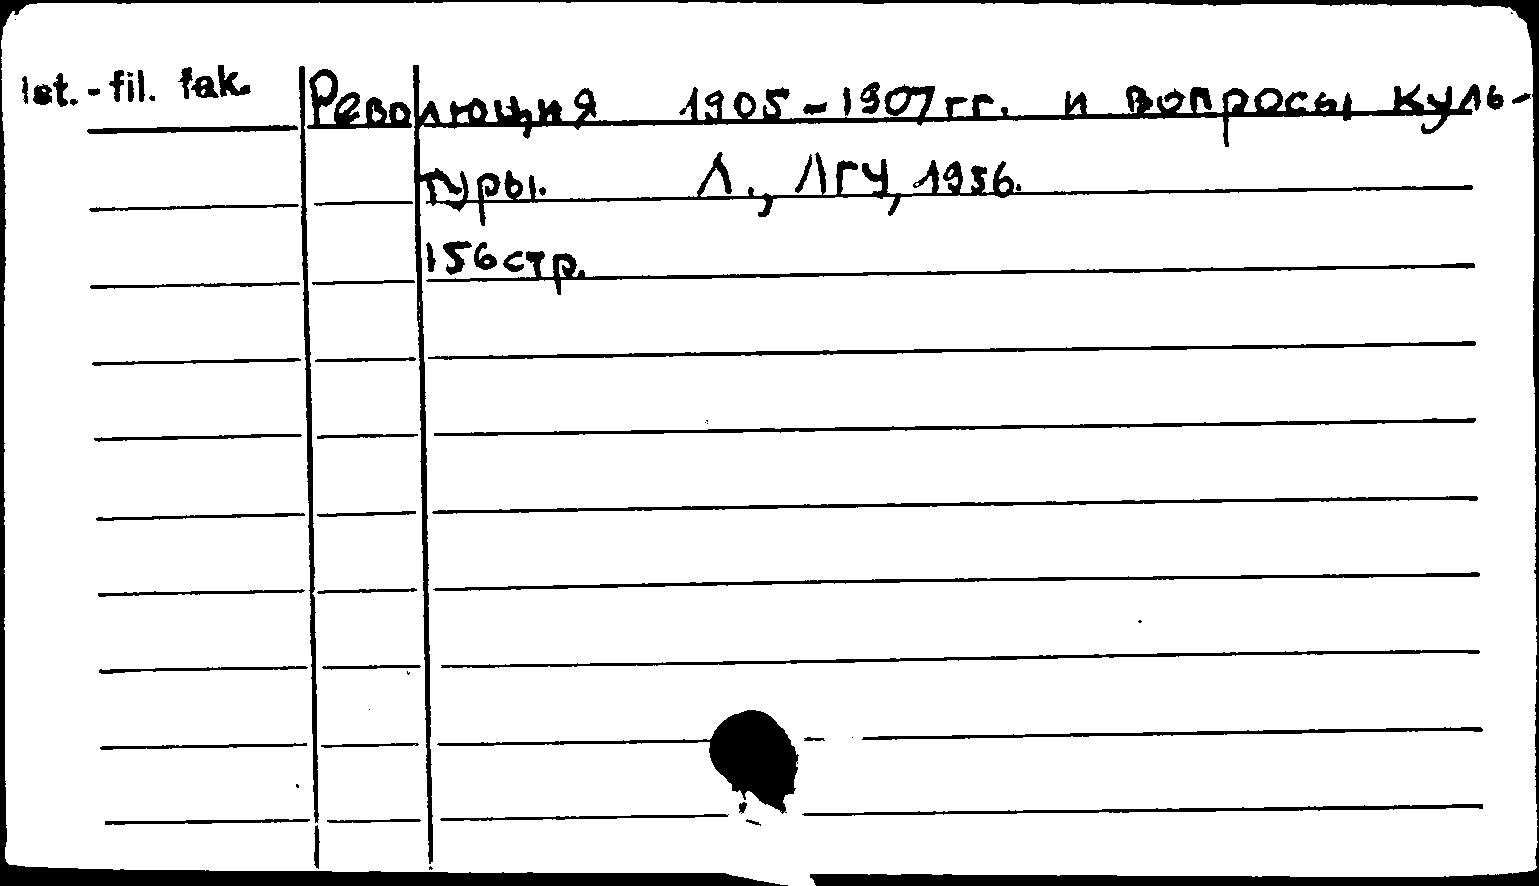 Ist. - fil. fak.
Революция 1905-1907 гг. и вопросы куль-
туры. Л., ЛГУ, 1956.
156 стр.